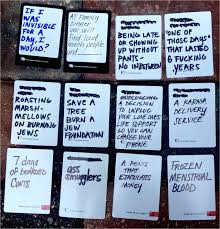 IF I
WAS
INVISIBLE
FOR
A DAY, I
WOULD?
AT FAMILY
DINNER
you
will find
people
BEING LATE OR
SHOWING UP
WITHOUT
PANTS-
NO INBETWEEN
"ONE OF
THOSE DAYS"
THAT LASTED
6 FUCKING
YEARS
ROASTING
MARSH-
MELLOWS
ON BURNING
JEWS
SAVE A
TREE
BURN A
JEW
FOUNDATION
A DECISION
TO UNPLUG
YOUR LOVE ONES
LIFE SUPPORT
SO YOU CAN
CHARGE YOUR
PHONE
A KARMA
DELIVERY
SERVICE
7 days
of
bearded
Cunts
ass
smugglers
A PENIS
THAT
EJACULATES
MONEY
FROZEN
MENSTRUAL
BLOOD